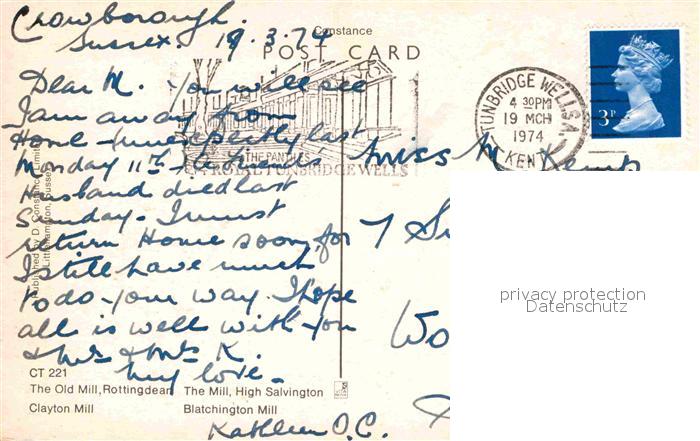 Crowborough.
Sussex. 19.3.74
Constance
POST CARD
Dear M. You will see
I am away from
Home - unexpectly last
Monday 11th. 
THE PANTILES
ROYAL TUNBRIDGE WELLS
Husband died last
Sunday. I must
return Home soon, for
I still have much
to do - your way. I hope
all is well with you
& Mr & Mrs K.
my love -
Kathleen O.C.
TUNBRIDGE WELLS A
4 30PM
19 MCH
1974
KENT
3P
Miss M. Kemp
7
Wo
privacy protection
Datenschutz
Published by D. Constance Limited
Littlehampton, Sussex
CT 221
The Old Mill, Rottingdean
The Mill, High Salvington
Clayton Mill
Blatchington Mill